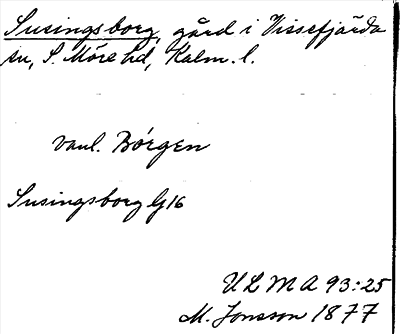 Susingsborg, gård i Vissefjärda
sn, S. Möre hd, Kalm. l.
vanl. Börgen
Susingsborg G16
ULMA 93:25
M. Jonsson 1877